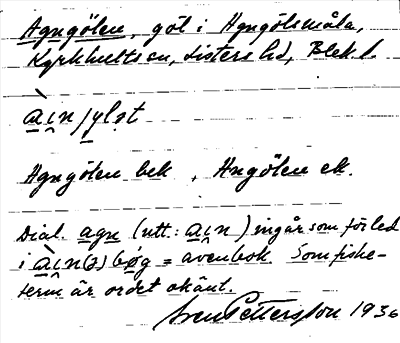 Agngölen, göl i Agngölsmåla,
Kyrkhults sn, Listers hd, Blek. l.
Agngölen bek, Angölen ek.
Dial. agn (utt.: ain) ingår som förled
i = avenbok. Som fiske-
term är ordet okänt.
Sven Pettersson 1936